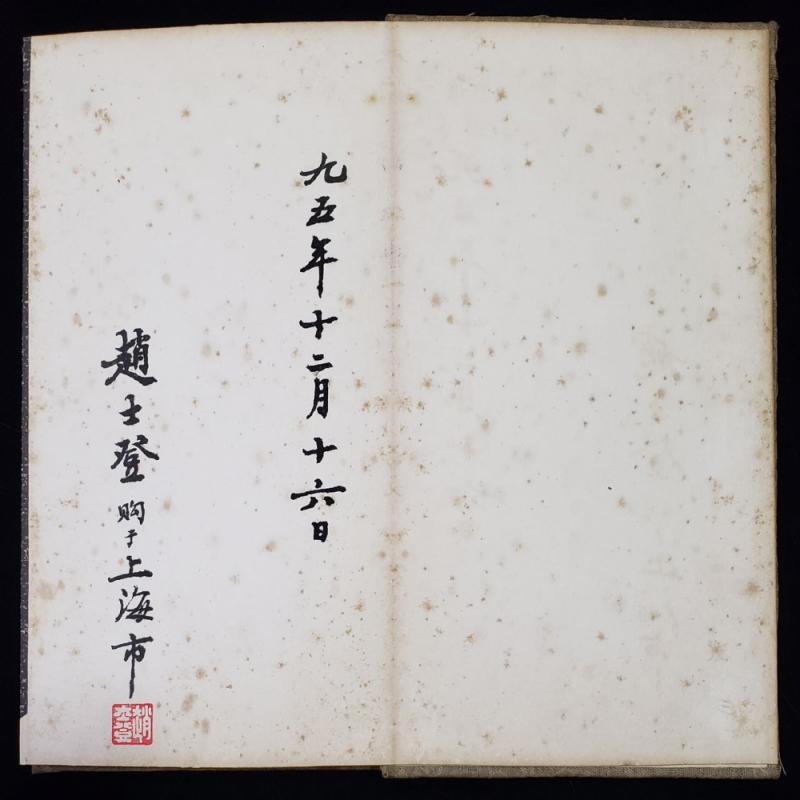 九五年十二月十六日
趙士登购于上海市
趙士登